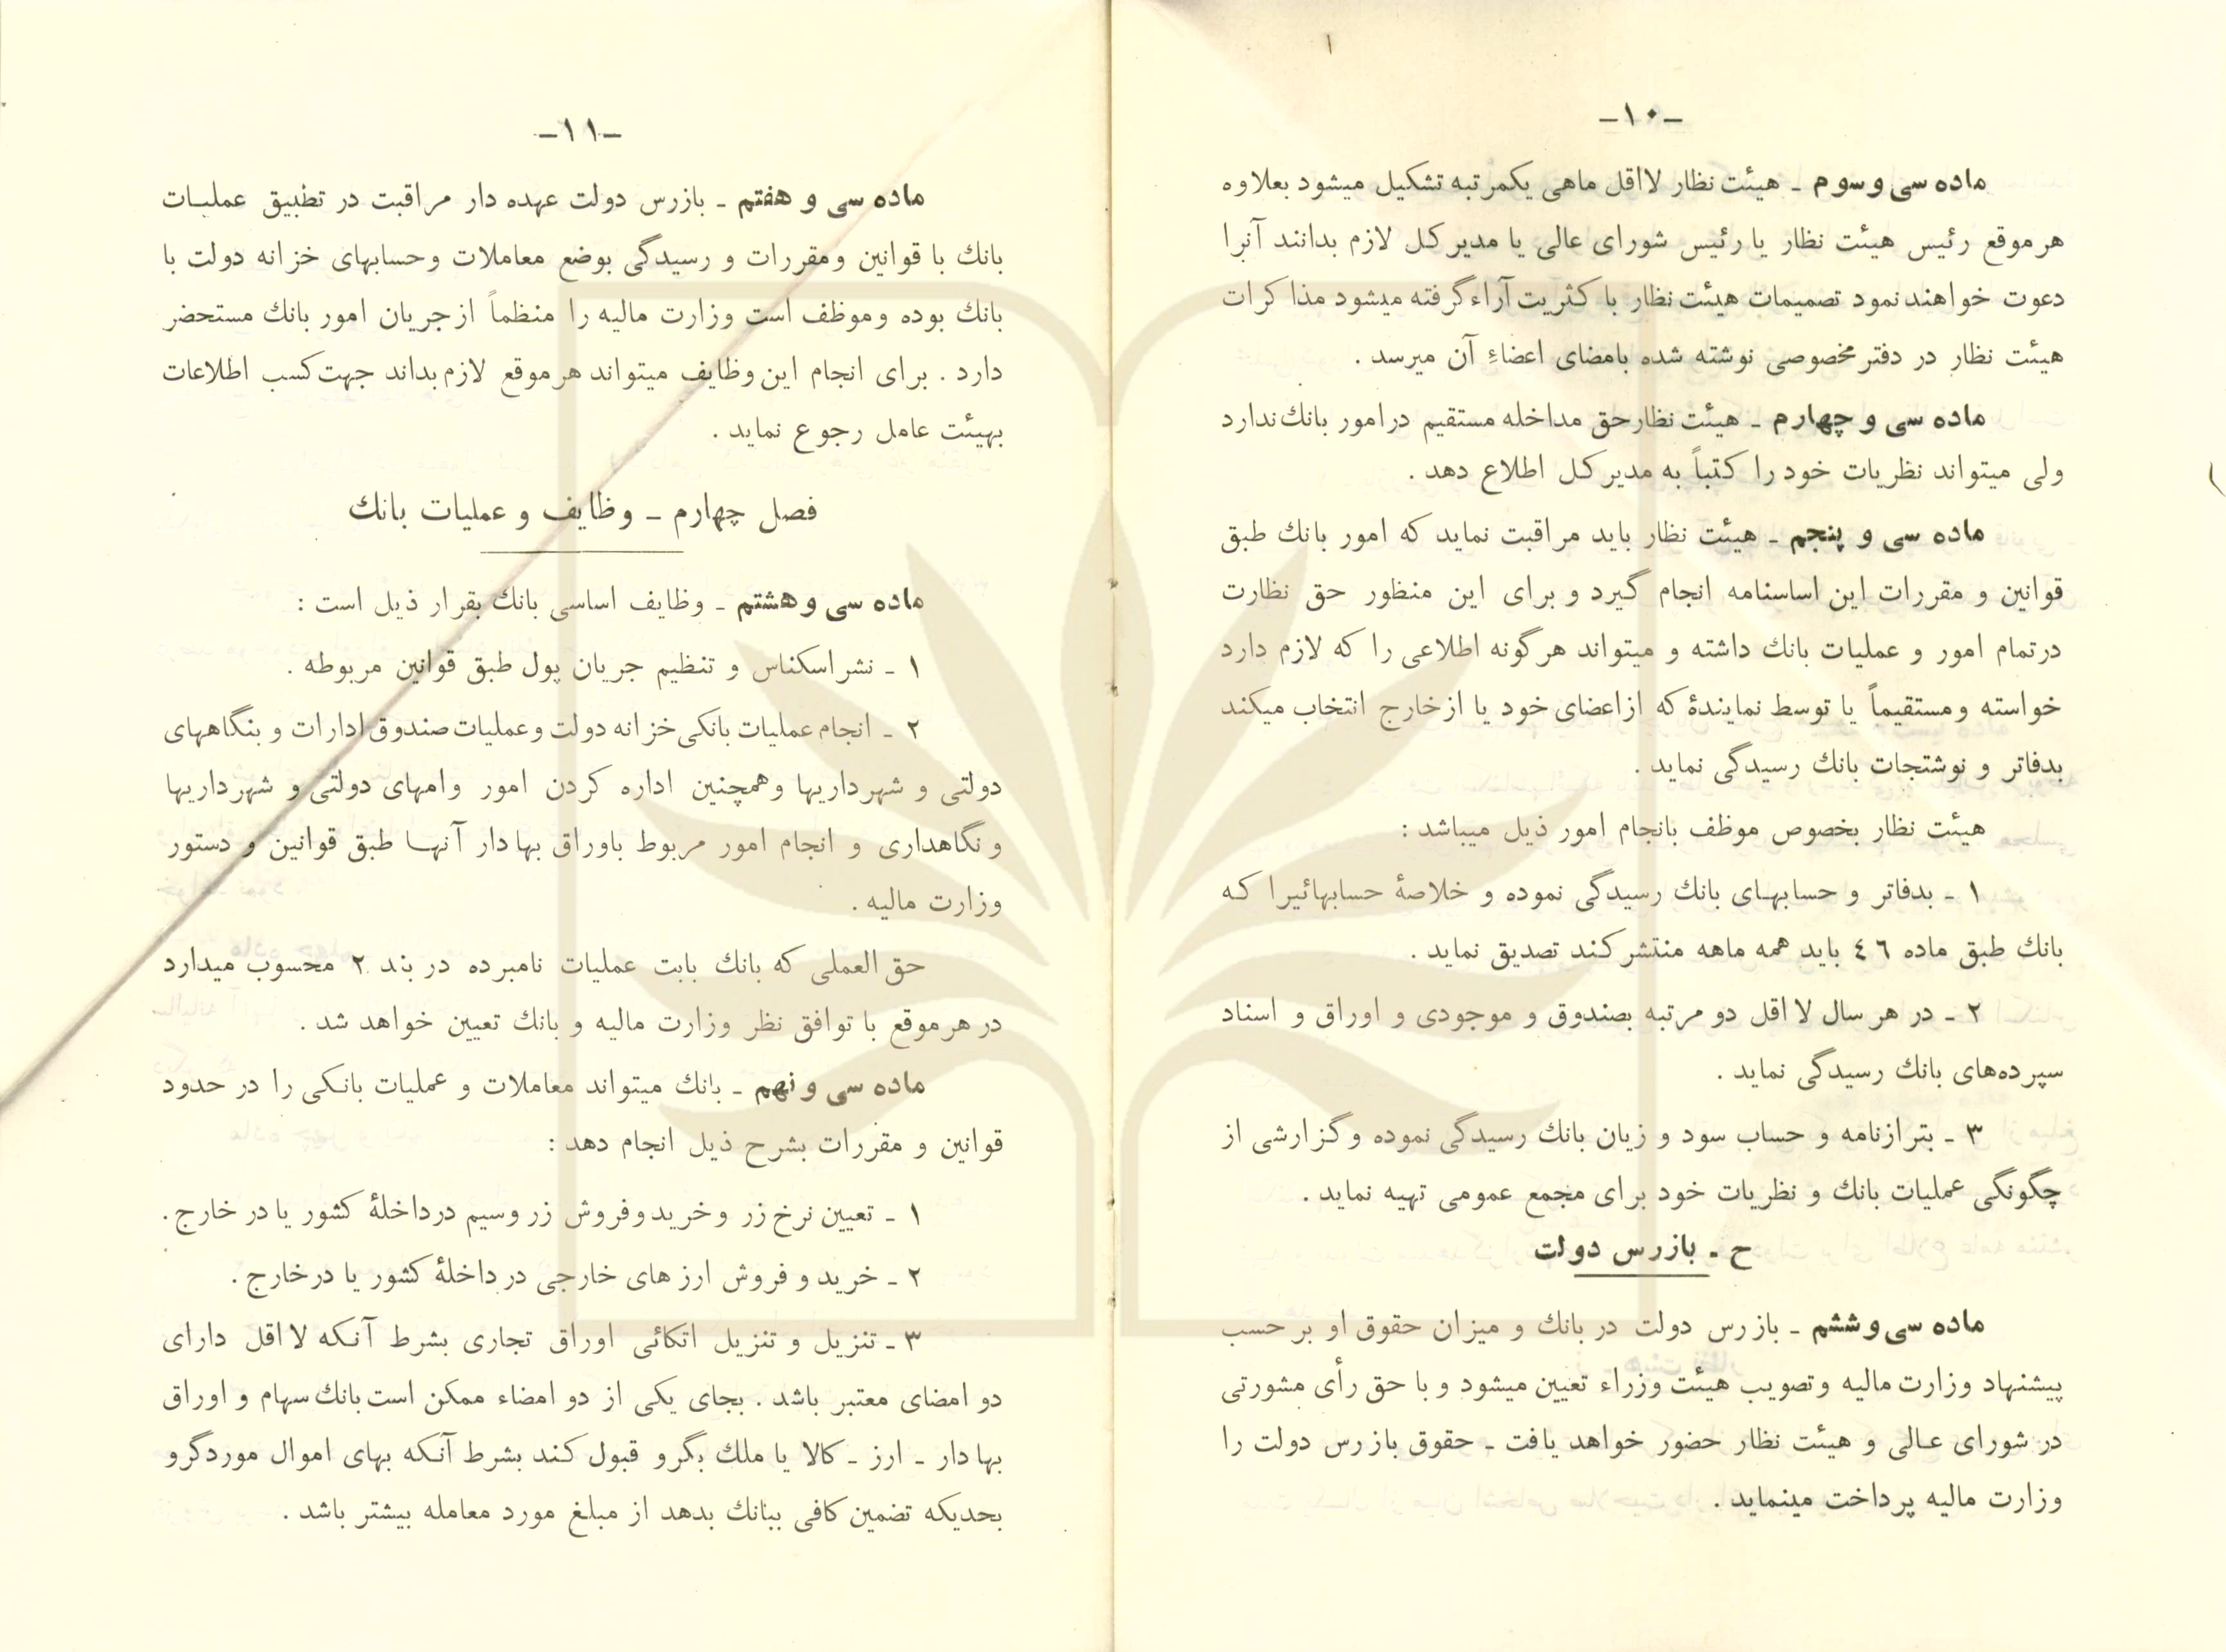 -۱۰-
ماده سی و سوم ـ هیئت نظار لااقل ماهی یکمرتبه تشکیل میشود بعلاوه
هر موقع رئیس هیئت نظار یا رئیس شورای عالی یا مدیر کل لازم بدانند آنرا
دعوت خواهند نمود تصمیمات هیئت نظار با کثریت آراء گرفته میشود مذاکرات
هیئت نظار در دفتر مخصوصی نوشته شده بامضای اعضاء آن میرسد .
ماده سی و چهارم ـ هیئت نظار حق مداخله مستقیم در امور بانك ندارد
ولی میتواند نظریات خود را کتباً به مدیر کل اطلاع دهد .
ماده سی و پنجم ـ هیئت نظار باید مراقبت نماید که امور بانك طبق
قوانین و مقررات این اساسنامه انجام گیرد و برای این منظور حق نظارت
در تمام امور و عملیات بانك داشته و میتواند هر گونه اطلاعی را که لازم دارد
خواسته و مستقیماً یا توسط نمایندۀ که از اعضای خود یا از خارج انتخاب میکند
بدفاتر و نوشتجات بانك رسیدگی نماید .
هیئت نظار بخصوص موظف بانجام امور ذیل میباشد :
۱ ـ بدفاتر و حسابهای بانك رسیدگی نموده و خلاصۀ حسابهائیرا که
بانك طبق ماده ٤٦ باید همه ماهه منتشر کند تصدیق نماید .
۲ ـ در هر سال لااقل دو مرتبه بصندوق و موجودی و اوراق و اسناد
سپرده‌های بانك رسیدگی نماید .
۳ ـ بترازنامه و حساب سود و زیان بانك رسیدگی نموده و گزارشی از
چگونگی عملیات بانك و نظریات خود برای مجمع عمومی تهیه نماید .
ح ـ بازرس دولت
ماده سی و ششم ـ بازرس دولت در بانك و میزان حقوق او بر حسب
پیشنهاد وزارت مالیه و تصویب هیئت وزراء تعیین میشود و با حق رأی مشورتی
در شورای عالی و هیئت نظار حضور خواهد یافت ـ حقوق بازرس دولت را
وزارت مالیه پرداخت مینماید .
-۱۱-
ماده سی و هفتم ـ بازرس دولت عهده دار مراقبت در تطبیق عملیات
بانك با قوانین و مقررات و رسیدگی بوضع معاملات و حسابهای خزانه دولت با
بانك بوده و موظف است وزارت مالیه را منظماً از جریان امور بانك مستحضر
دارد . برای انجام این وظایف میتواند هر موقع لازم بداند جهت کسب اطلاعات
بهیئت عامل رجوع نماید .
فصل چهارم ـ وظایف و عملیات بانك
ماده سی و هشتم ـ وظایف اساسی بانك بقرار ذیل است :
۱ ـ نشر اسکناس و تنظیم جریان پول طبق قوانین مربوطه .
۲ ـ انجام عملیات بانکی خزانه دولت و عملیات صندوق ادارات و بنگاههای
دولتی و شهرداریها و همچنین اداره کردن امور وامهای دولتی و شهرداریها
و نگاهداری و انجام امور مربوط باوراق بهادار آنها طبق قوانین و دستور
وزارت مالیه .
حق العملی که بانك بابت عملیات نامبرده در بند ۲ محسوب میدارد
در هر موقع با توافق نظر وزارت مالیه و بانك تعیین خواهد شد .
ماده سی و نهم ـ بانك میتواند معاملات و عملیات بانکی را در حدود
قوانین و مقررات بشرح ذیل انجام دهد :
۱ ـ تعیین نرخ زر و خرید و فروش زر وسیم در داخلۀ کشور یا در خارج .
۲ ـ خرید و فروش ارز های خارجی در داخلۀ کشور یا در خارج .
۳ ـ تنزیل و تنزیل اتکائی اوراق تجاری بشرط آنکه لااقل دارای
دو امضای معتبر باشد . بجای یکی از دو امضاء ممکن است بانك سهام و اوراق
بهادار ـ ارز ـ کالا یا ملك بگرو قبول کند بشرط آنکه بهای اموال مورد گرو
بحدیکه تضمین کافی ببانك بدهد از مبلغ مورد معامله بیشتر باشد .